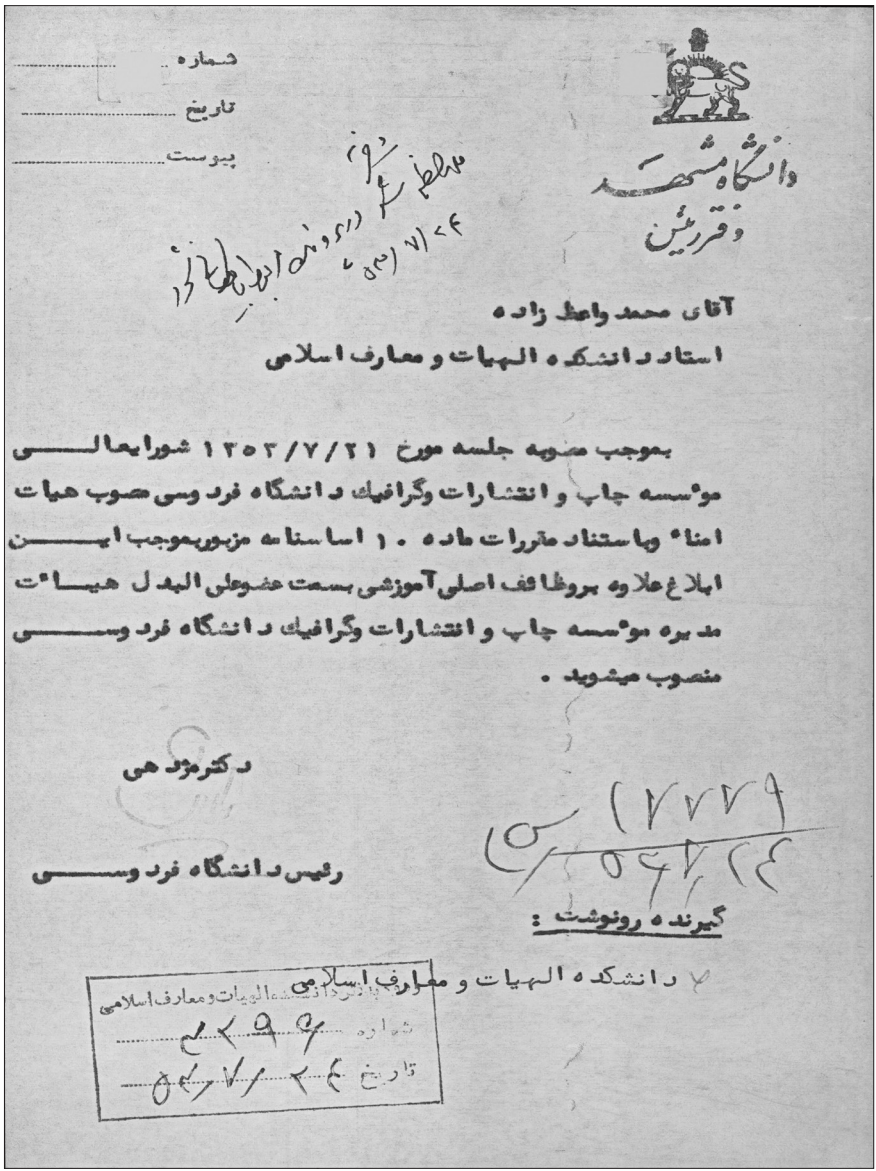 شماره
تاریخ
پیوست
دانشگاه مشهد
دفتر رئیس
ملاحظه شد
۵۳/۷/۲۴
آقای محمد واعظ زاده
استاد دانشکده الهیات و معارف اسلامی
بموجب مصوبه جلسه مورخ ۱۳۵۳/۷/۲۱ شورایعالی
موٴسسه چاپ و انتشارات وگرافیك دانشگاه فردوسی مصوب هیات
امناء وباستناد مقررات ماده ۱۰ اساسنامه مزبوربموجب این
ابلاغ علاوه بروظائف اصلی آموزشی بسمت عضوعلی البدل هیاٴت
مدیره موٴسسه چاپ و انتشارات وگرافیك دانشگاه فردوسی
منصوب میشوید .
دکترمژدهی
رئیس دانشگاه فردوسی
۱۷۷۷۹
۵۳/۷/۲۴
گیرنده رونوشت :
دانشکده الهیات و معارف اسلامی
دانشکده الهیات و معارف اسلامی
شماره
تاریخ ۵۳/۷/۲۴